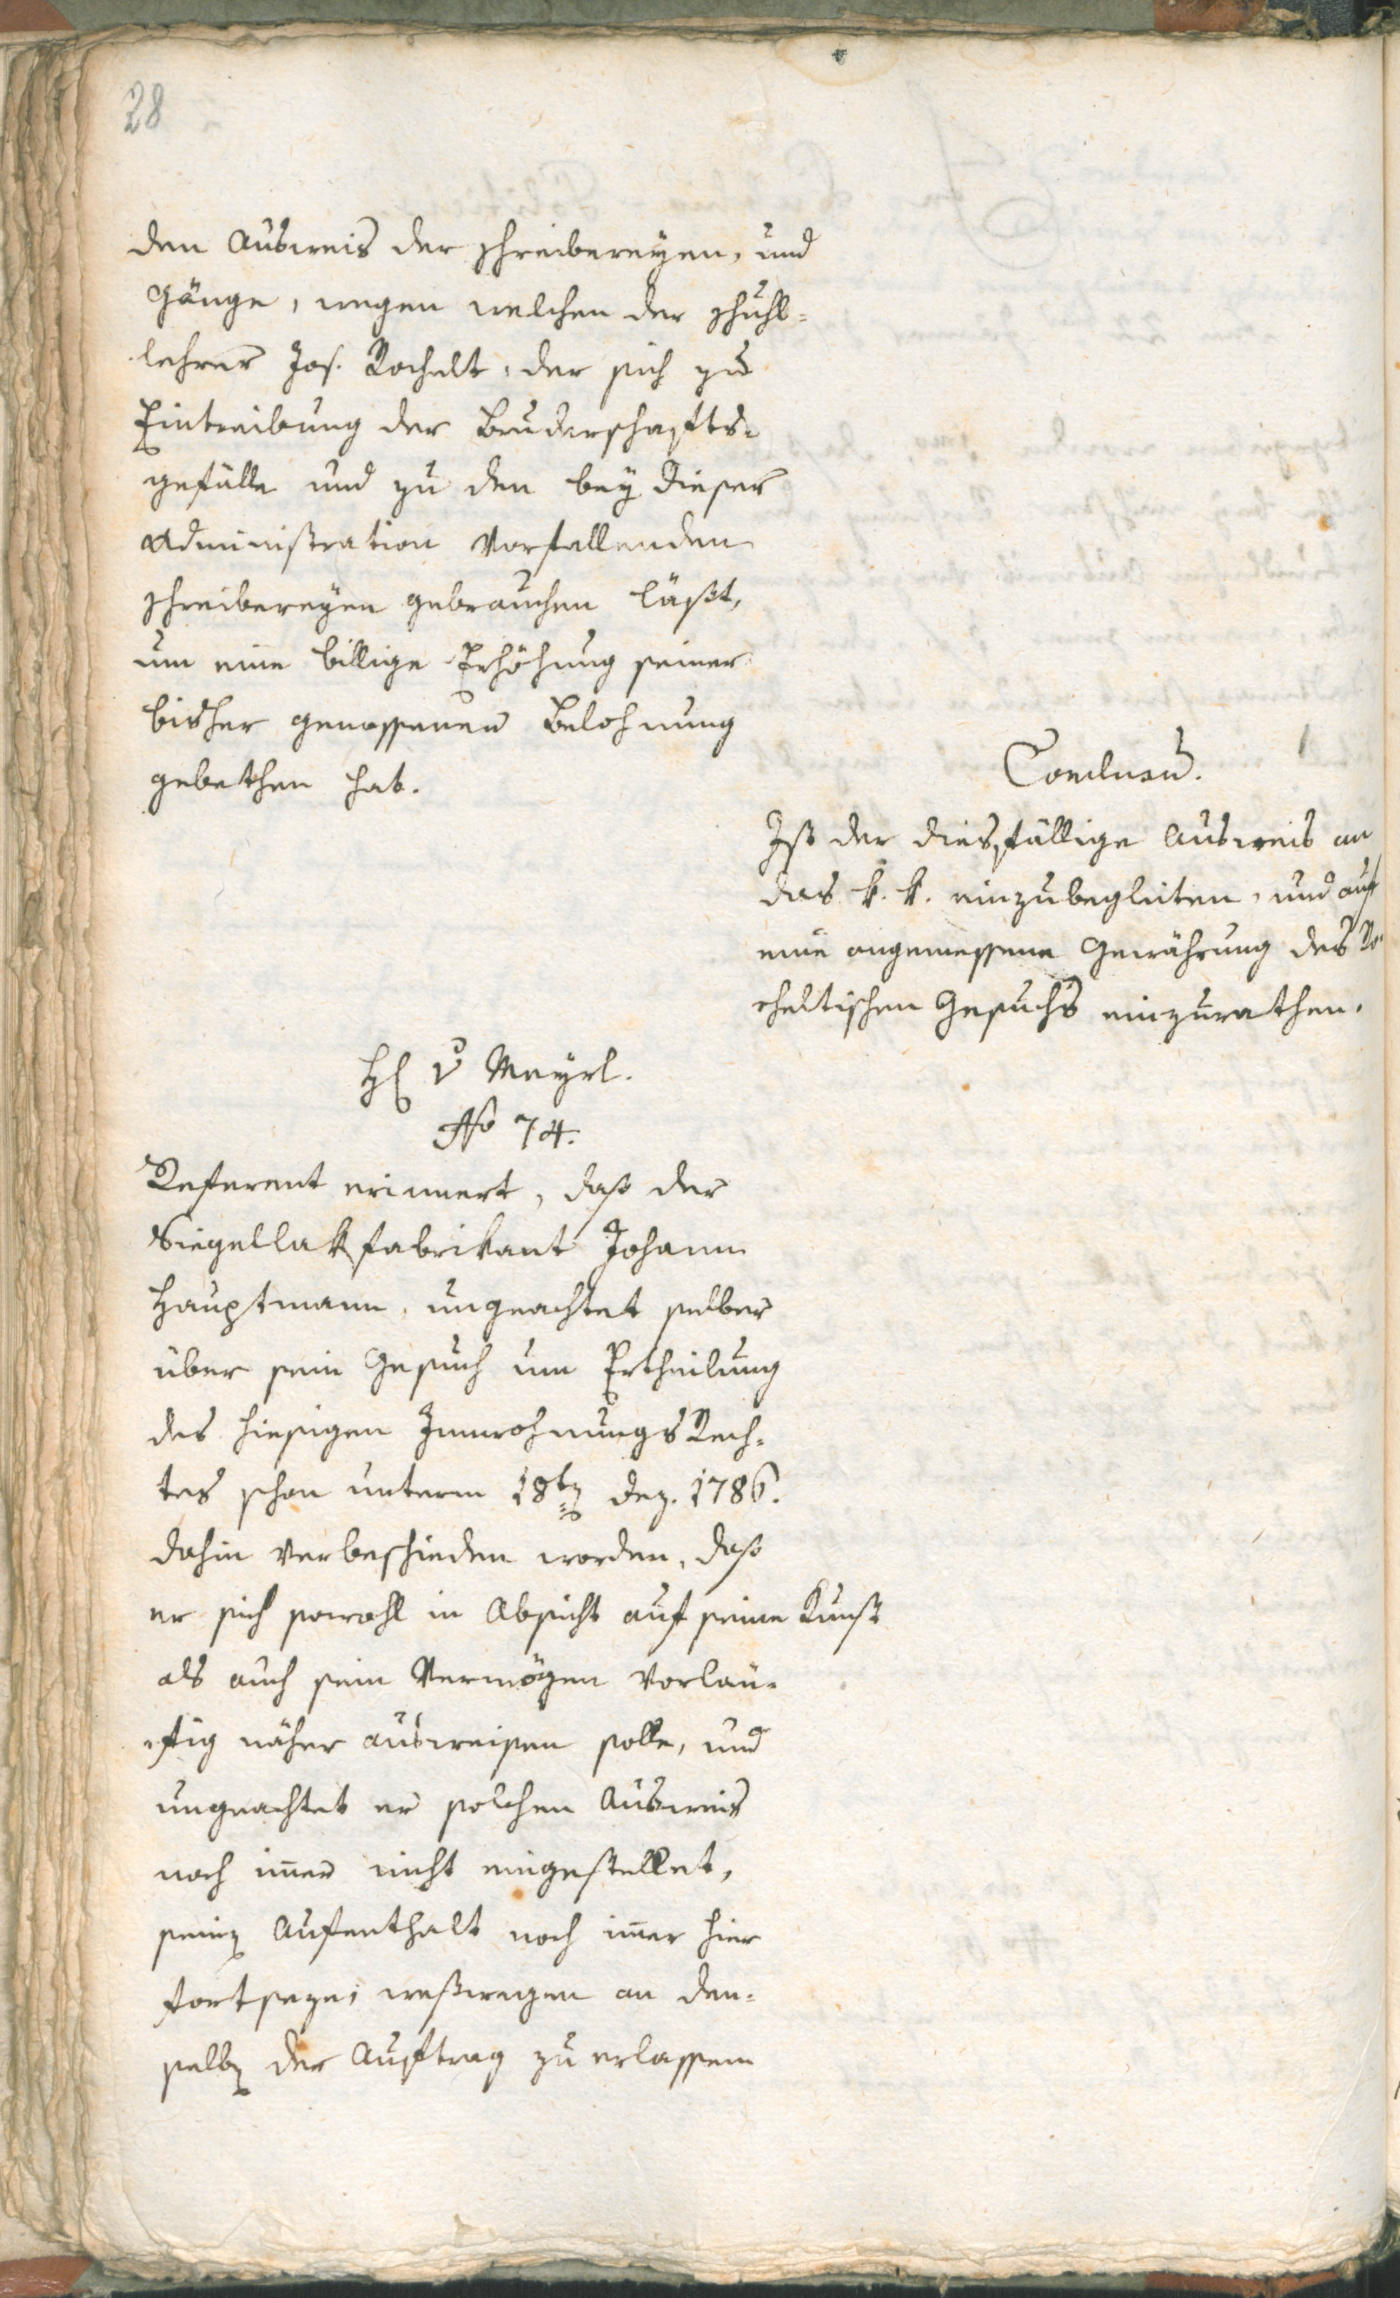 28
den Ausweis der schreibereyen, und
Gänge, wegen welchen der schuhl-
lehrer Jos. Rochelt, der sich zu
Eintreibung der Bruderschafts-
gefälle und zu den bey dieser
Administration vorfallenden
schreibereyen gebrauchen läßt,
um eine billige Erhöhung seiner
bisher genossenen Belohnung
gebethen hat.
Conclusum.
Ist der diesfällige Ausweis an
das k. k. einzubegleiten, und auf
eine angemessene Gewährung des Ro-
cheltischen Gesuchs einzurathen.
H v Mayrl.
No 74.
Referent erinnert, daß der
Siegellakfabrikant Johann
Hauptmann, ungeachtet selber
über sein Gesuch um Ertheilung
des hiesigen Innwohnungs Rech-
tes schon unterm 18ten Dez. 1786.
dahin verbeschieden worden, daß
er sich sowohl in Absicht auf seine Kunst
als auch sein Vermögen vorläu-
fig näher ausweisen solle, und
ungeachtet er solchen Ausweis
noch imer nicht eingestellet,
seinen Aufenthalt noch imer hier
fortseze; weßwegen an den-
selben der Auftrag zu erlassen